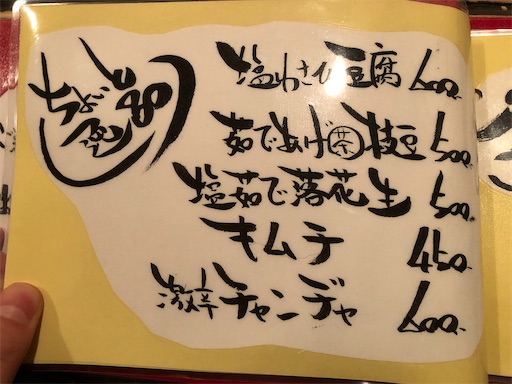 塩わさび豆腐 600-
茹であげ茶枝豆 500-
塩茹で落花生 500-
キムチ 450-
激辛チャンヂャ 600-